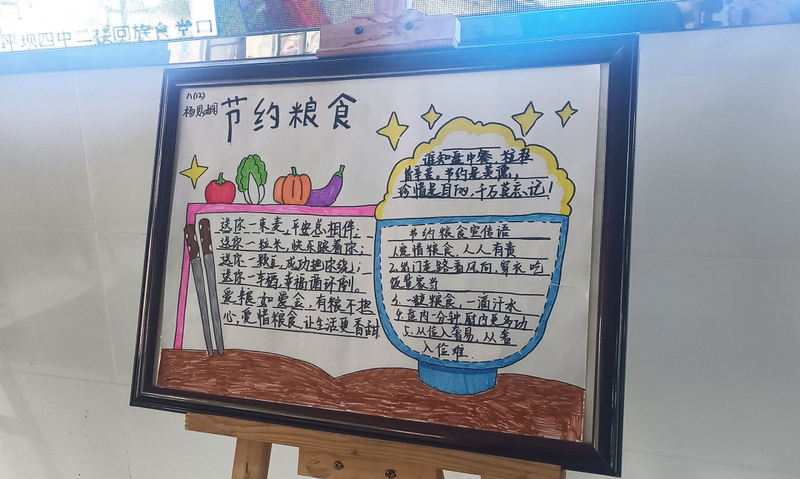 坪坝四中二楼回族食堂口
八(12)
节约粮食
谁知盘中餐,粒粒
皆辛苦,节约是美德,
珍惜是自,千万莫忘记!
送你一束麦,平安总相伴;
送你一粒米,快乐跟着你;
送你一颗豆,成功把你绕;
送你一车稻,幸福循环刷。
爱粮如爱金,有粮不担
心,爱惜粮食,让生活更香甜
节约粮食宣传语
1.爱惜粮食,人人有责
2.出门走路看风向,穿衣吃
饭量家当
3.一粒粮食,一滴汗水
4.在内一分钟,厨内更多功
5.从俭入奢易,从奢
入俭难.